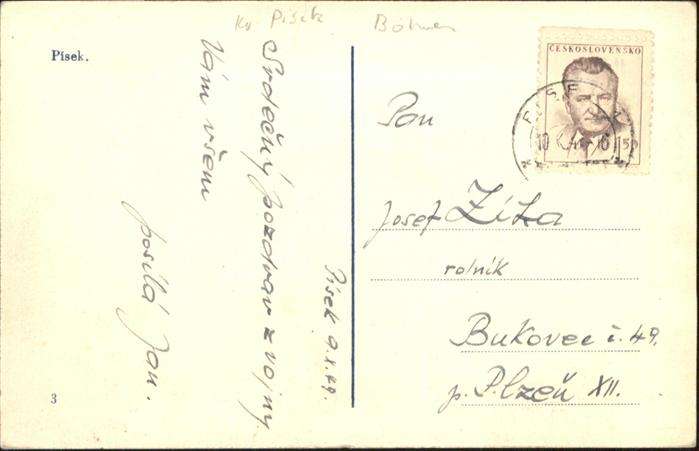 Kr Písek Böhmen
Písek.
Písek 9.X.49.
Srdečný pozdrav z vojny
Vám všem
posílá Jan.
3
ČESKOSLOVENSKO
1,50
Pan
Josef Zíka
rolník
Bukovec č. 49.
p. Plzeň XII.